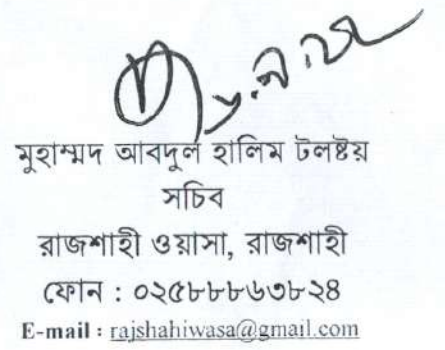 মুহাম্মদ আবদুল হালিম টলষ্টয়
সচিব
রাজশাহী ওয়াসা, রাজশাহী
ফোন : ০২৫৮৮৮৬৩৮২৪
E-mail : rajshahiwasa@gmail.com